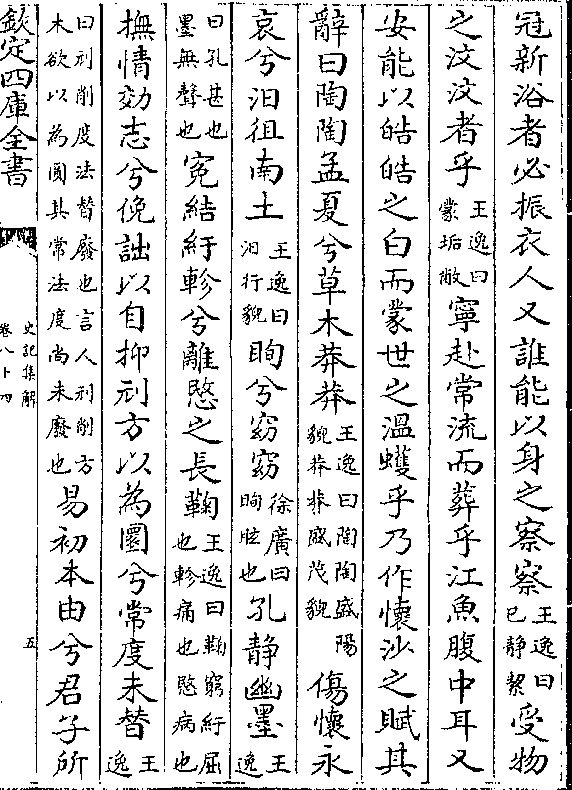 冠新浴者必振衣人又誰能以身之察察王逸曰已静㓗受物
之汶汶者乎王逸曰蒙垢敝寧赴常流而葬乎江魚腹中耳又
安能以皓皓之白而蒙世之温蠖乎乃作懷沙之賦其
辭曰陶陶孟夏兮草木莽莽王逸曰陶陶盛陽貌莽莽盛茂貌傷懷永
哀兮汨徂南土王逸曰汨行貌眴兮窈窈徐廣曰眴眩也孔静幽墨王逸
曰孔甚也墨無聲也寃結紆軫兮離愍之長鞠王逸曰鞠窮紆屈也軫痛也愍病也
撫情効志兮俛詘以自抑刓方以為圜兮常度未替王逸
曰刓削度法替廢也言人刓削方木欲以為圜其常法度尚未廢也易初本由兮君子所
欽定四庫全書
史記集解
卷八十四
五